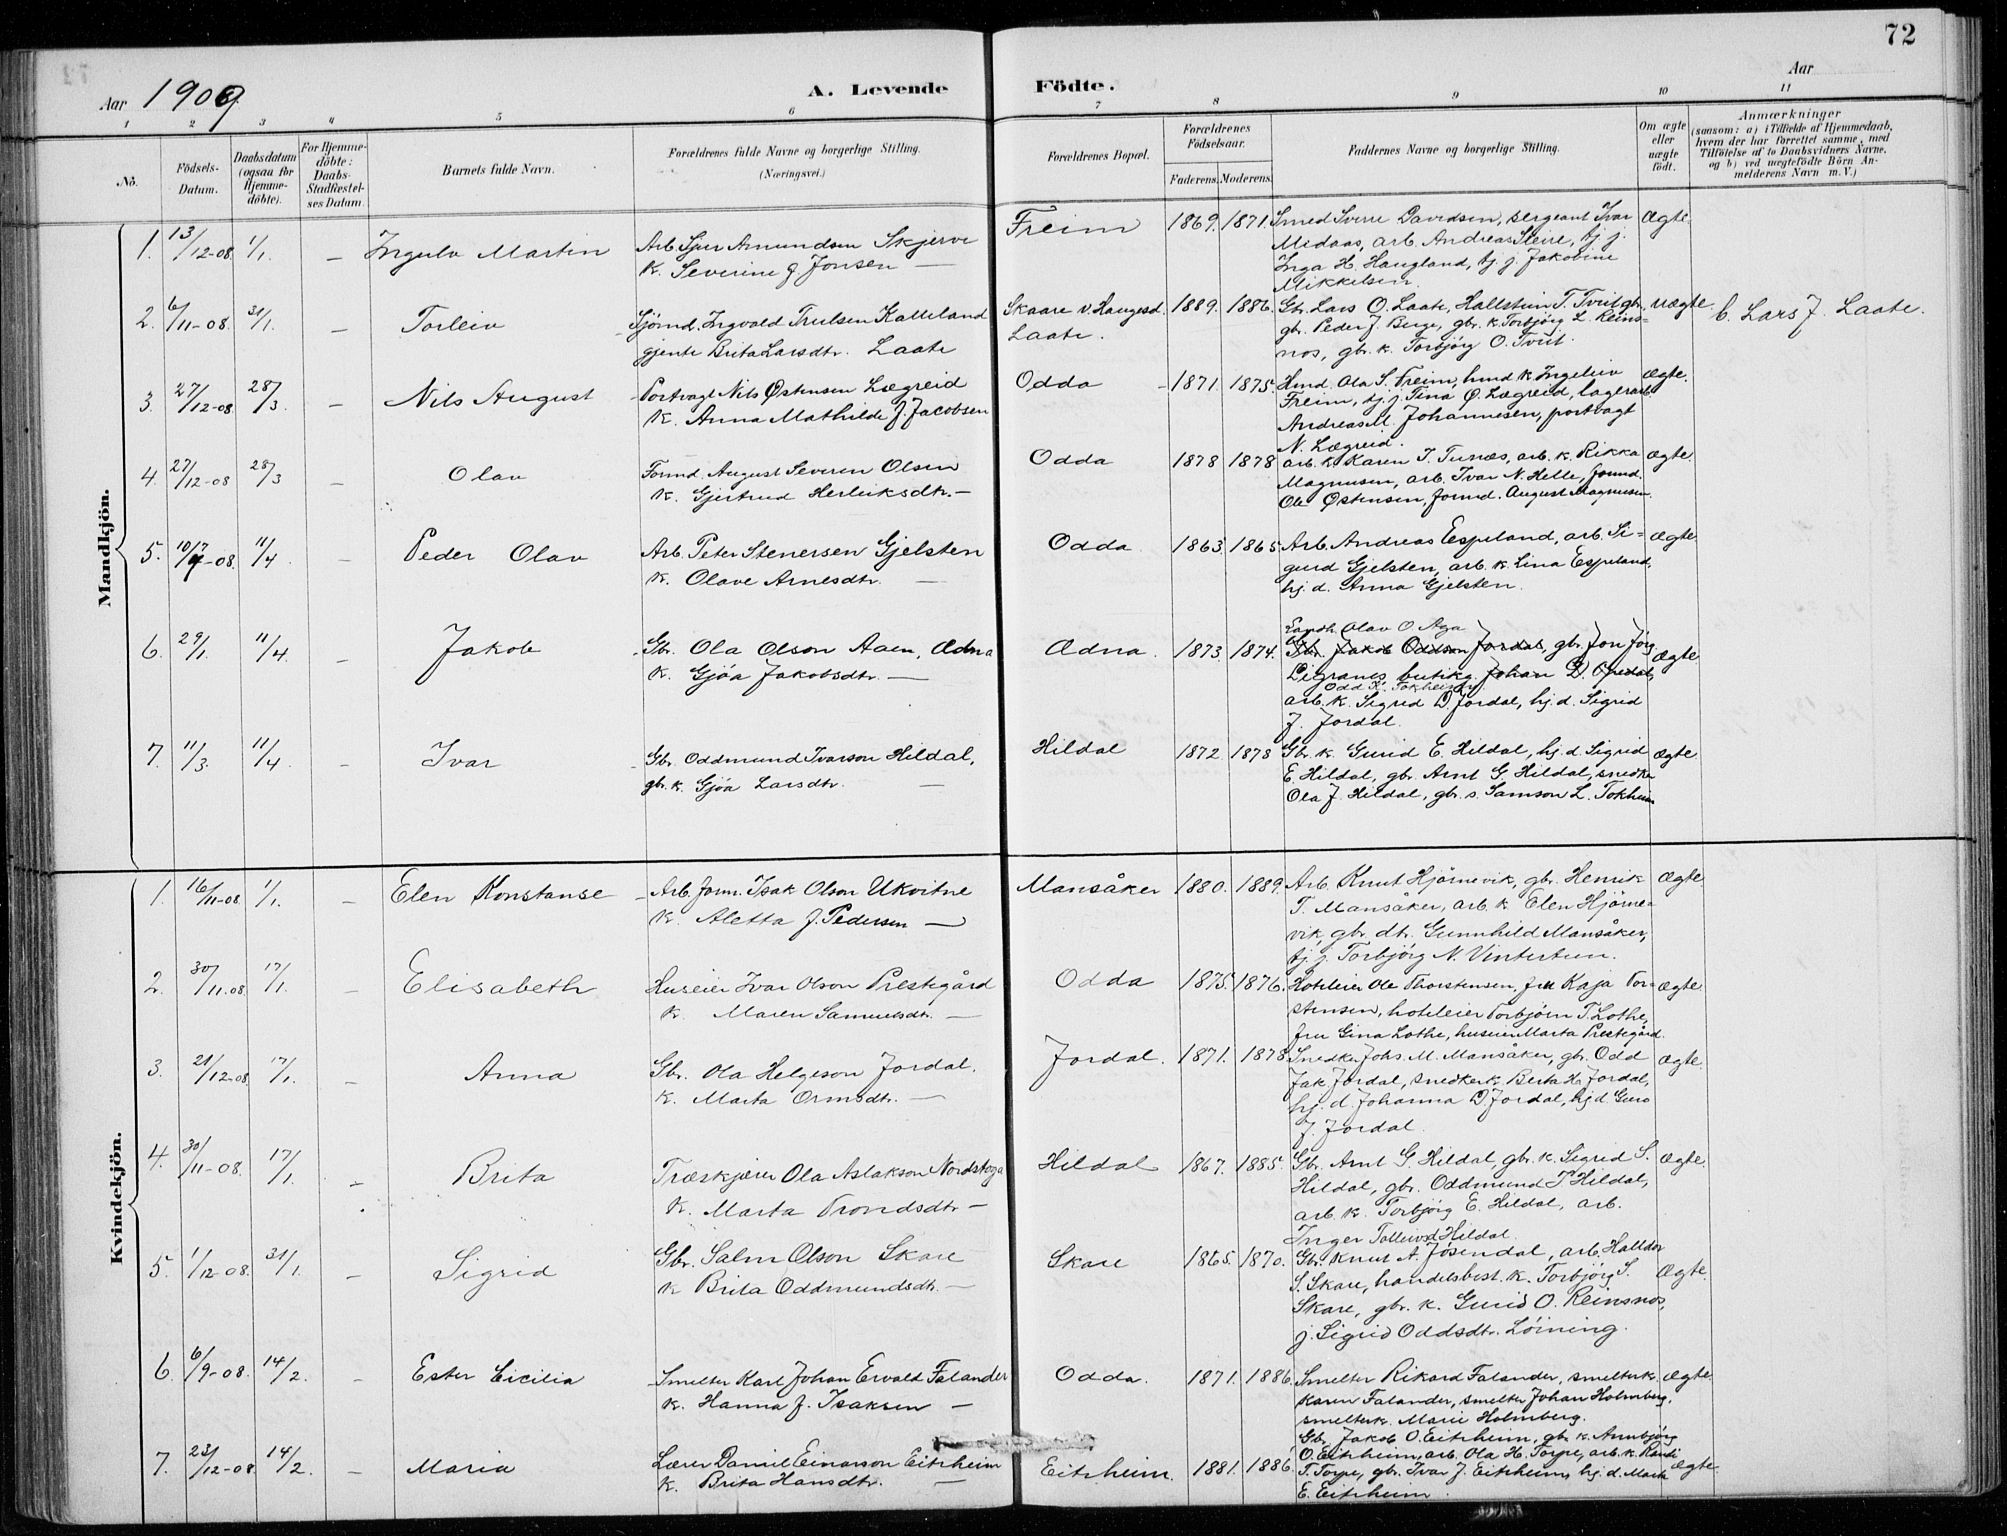 72
Aar 1909
A. Levende Födte.
Aar
1 2 3 4 5 6 7 8 9 10 11
Nö.
Födsels-Datum.
Daabsdatum (ogsaa for Hjemmedöbte).
For Hjemmedöbte: Daabs-Stadfæstelses Datum.
Barnets fulde Navn.
Forældrenes fulde Navne og borgerlige Stilling.
(Næringsvei.)
Forældrenes Bopæl.
Forældrenes Födselsaar.
Faderens. Moderens.
Faddernes Navne og borgerlige Stilling.
Om ægte eller uægte födt.
Anmærkninger
(saasom: a) i Tilfælde af Hjemmedaab, hvem der har forrettet samme, med Tilföielse af to Daabsvidners Navne, og b) ved uægtefödte Börn Anmelderens Navn m. V.)
Mandkjön.
1. 13/12-08. 1/1. – Ingulv Martin
Arb. Sjur Amundsen Skjerve
k. Severine f. Jonsen —
Freim 1869. 1871.
Smed Sverre Davidsen, sergeant Ivar
Midaas, arb. Andreas Steire, tj. j.
Inga H. Haugland, tj. j. Jakobine
Mikkelsen.
Ægte
2. 6/11-08. 31/1. – Torleiv
Sjömd. Ingvald Trulsen Kalleland
gjente Brita Larsdtr. Laate
Skaare v. Haugesd.
Laate.
1889. 1886.
Gbr. Lars O. Laate, Hallstein T. Tveit gbr.
gbr. Peder J. Berge, gbr. k. Torbjörg L. Reins-
nos, gbr. k. Torbjörg O. Tveit.
uægte
b. Lars J. Laate.
3. 27/12-08. 28/3. – Nils August
Portvagt Nils Östensen Lægreid
k. Anna Mathilde f. Jacobsen
Odda 1871. 1875.
Hmd. Ola S. Freim, hmd k Ingeleiv
Freim, tj. j. Tina Ø. Lægreid, lagerarb
Andreas M. Johannesen, portvagt
N. Lægreid.
ægte.
4. 27/12-08 28/3 – Olav
Formd. August Severin Olsen
k. Gjertrud Herleiksdtr. —
Odda 1878 1878
arb. k. Karen T. Tunæs, arb. k. Rikka
Magnusen, arb. Ivar N. Helle, formd.
Ole Østensen, formd. August Magnusen.
ægte.
5. 10/7-08. 11/4. – Peder Olav
Arb. Peter Stenersen Gjelsten
k. Olave Arnesdtr. —
Odda 1863. 1865.
Arb. Andreas Espeland, arb. Si-
gurd Gjelsten, arb. k. Lina Espeland,
hj. d. Anna Gjelsten.
ægte
6. 29/1. 11/4. – Jakob
Gbr. Ola Olson Aaen, Ædna
k. Gjöa Jakobsdtr. —
Ædna. 1873. 1874.
Landh. Olav O Aga
Gbr. Jakob Oddson Jordal, gbr. Jon Jörg
Digranes butikg. Johan D. Opedal,
Odd K. Tokheim
arb. k. Sigrid D. Jordal, hj. d. Sigrid
J. Jordal.
Ægte
7. 11/3. 11/4. – Ivar
Gbr. Oddmund Ivarson Hildal,
gbr. k. Gjöa Larsdtr. —
Hildal 1872 1878
Gbr. k. Gurid E. Hildal, hj. d. Sigrid
E. Hildal, gbr. Arnt G. Hildal, snedker
Ola J. Hildal, gbr. s. Samson L. Tokheim
ægte
Kvindekjön.
1. 16/11-08. 1/1. – Elen Konstanse
Arb. form. Isak Olson Ukvitne
k. Aletta f. Pedersen —
Mansåker 1880. 1889.
Arb. Knut Hjörnevik, gbr. Henrik
T. Mansåker, arb. k. Elen Hjörne-
vik, gbr. dtr. Gunnhild Mansåker,
tj. j. Torbjörg N. Vintertun.
Ægte
2. 30/11-08. 17/1. – Elisabeth
Huseier Ivar Olson Prestegård
k. Maren Samuelsdtr. —
Odda 1875. 1876.
Hoteleier Ole Thorstensen, fru Kaja Tor-
stensen, hoteleier Torbjörn T. Lothe,
fru Gina Lothe, huseier Marta Prestegård
ægte
3. 21/12-08. 17/1. – Anna
Gbr. Ola Helgeson Jordal.
k. Marta Ormsdtr. —
Jordal. 1871. 1878.
Snedker Johs. M. Mansåker, gbr. Odd
Jak Jordal, snedker k. Berta H. Jordal,
hj. d. Johanna D Jordal, hj. d. Guro
J. Jordal.
ægte.
4. 30/11-08 17/1. – Brita
Træskjærer Ola Aslakson Nordstoga
k. Marta Trondsdtr —
Hildal 1867. 1885.
Gbr. Arnt G. Hildal, gbr. k. Sigrid S.
Hildal, gbr. Oddmund T Hildal,
arb. k. Torbjörg E. Hildal, arb.
Inger Tolleivsd Hildal.
Ægte.
5. 1/12-08. 31/1. – Sigrid
Gbr. Salm Olson Skare
k Brita Oddmundsdtr. —
Skare 1865. 1870.
Gbr. Knut A. Jösendal, arb. Halldor
S. Skare, handelsbest. k. Torbjörg S.
Skare, gbr. k. Gurid O. Reinsnos,
j. Sigrid Oddsdtr. Löining.
Ægte.
6. 6/9-08. 14/2. – Ester Cicilia
Smelter Karl Johan Ervald Falander
k. Hanna f. Isaksen —
Odda. 1871. 1886.
Smelter Rikard Falander, smelterk.
Karen Falander, smelter Johan Holmberg,
smelterk. Marie Holmberg.
ægte
7. 23/12-08. 14/2. – Maria
Lærer Daniel Einarson Eitrheim
k. Brita Hansdtr. —
Eitrheim. 1881. 1886.
Gbr. Jakob O. Eitrheim, gbr. k. Annbjörg
O. Eitrheim, arb. Ola H. Torpe, arb. k. Randi
T. Torpe, gbr. Ivar J. Eitrheim, hj. d. Marta
E. Eitrheim.
ægte